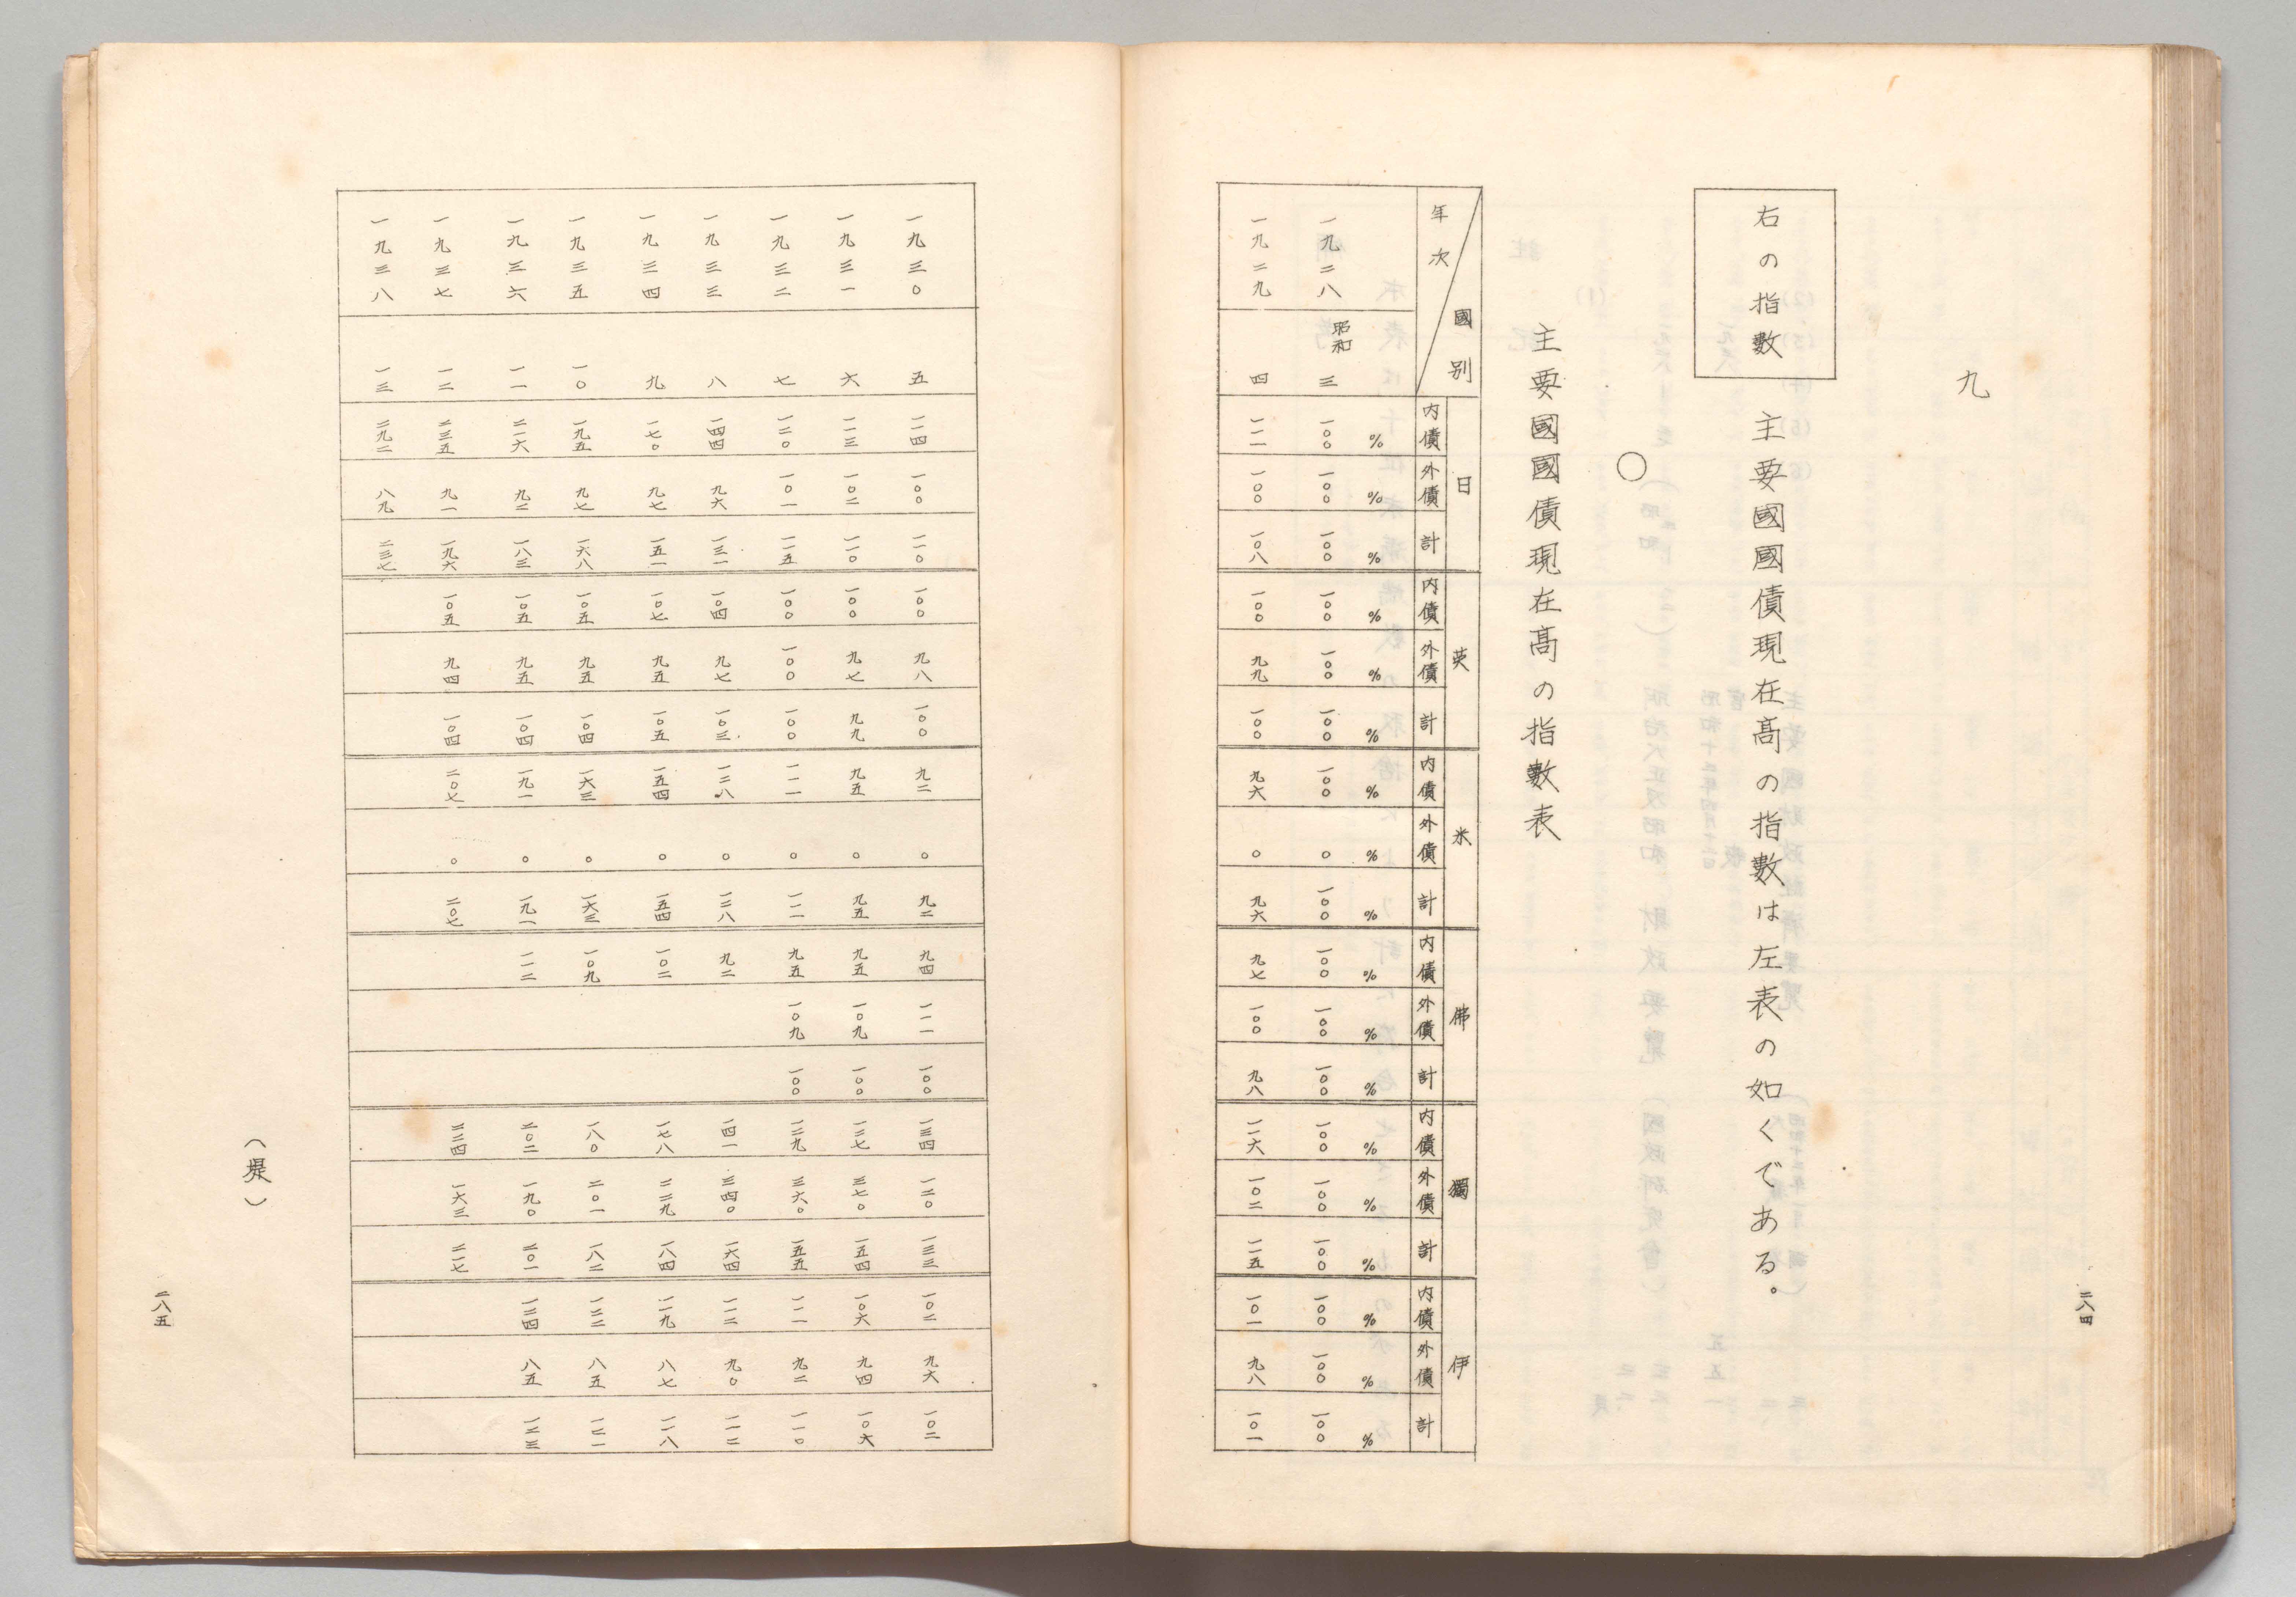 二八四
九
右の指數 主要國國債現在高の指數は左表の如くである。
○
主要國國債現在高の指數表
國別 日 英 米 佛 獨 伊
年次 内債 外債 計 内債 外債 計 内債 外債 計 内債 外債 計 内債 外債 計 内債 外債 計
% % % % % % % % % % % % % % % % % %
一九二八 昭和三 一〇〇 一〇〇 一〇〇 一〇〇 一〇〇 一〇〇 一〇〇 〇 一〇〇 一〇〇 一〇〇 一〇〇 一〇〇 一〇〇 一〇〇 一〇〇 一〇〇 一〇〇
一九二九 四 一一一 一〇〇 一〇八 一〇〇 九九 一〇〇 九六 〇 九六 九七 一〇〇 九八 一一六 一〇二 一一五 一〇一 九八 一〇一
一九三〇 五 一一四 一〇〇 一一〇 一〇〇 九八 一〇〇 九二 〇 九二 九四 一一一 一〇〇 一三四 一二〇 一三三 一〇二 九六 一〇二
一九三一 六 一一三 一〇二 一一〇 一〇〇 九七 九九 九五 〇 九五 九五 一〇九 一〇〇 一二七 三七〇 一五四 一〇六 九四 一〇六
一九三二 七 一二〇 一〇一 一一五 一〇〇 一〇〇 一〇〇 一一一 〇 一一一 九五 一〇九 一〇〇 一二九 三六〇 一五五 一一一 九二 一一〇
一九三三 八 一四四 九六 一三一 一〇四 九七 一〇三 一二八 〇 一二八 九二 一四一 三四〇 一六四 一一二 九〇 一一二
一九三四 九 一七〇 九七 一五一 一〇七 九五 一〇五 一五四 〇 一五四 一〇二 一七八 二二九 一八四 一一九 八七 一一八
一九三五 一〇 一九五 九七 一六八 一〇五 九五 一〇四 一六三 〇 一六三 一〇九 一八〇 二〇一 一八二 一二二 八五 一二一
一九三六 一一 二一六 九二 一八三 一〇五 九五 一〇四 一九一 〇 一九一 一一二 二〇二 一九〇 二〇一 一二四 八五 一二三
一九三七 一二 二三五 九一 一九六 一〇五 九四 一〇四 二〇七 〇 二〇七 二二四 一六三 二一七
一九三八 一三 二九二 八九 二三七
（堤）
二八五